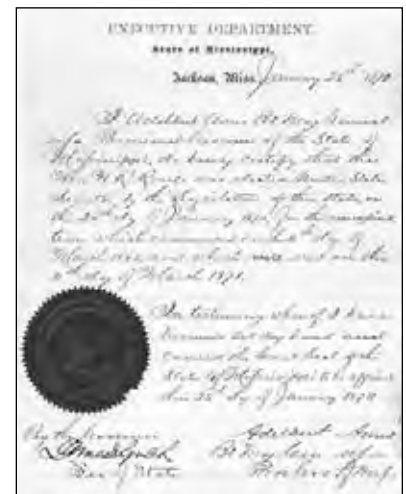 EXECUTIVE DEPARTMENT.
State of Mississippi,
Jackson, Miss. January 25th 1870
I Adelbert Ames Bt Maj General
Provisional Governor of the State of
Mississippi, do hereby certify that
Hon H R Revels was elected United States
Senator by the Legislature of this State on
the 20th day of January 1870 for the unexpired
term which commenced on the 4th day of
March 1865 and which will end on the
day of March 1871.
In testimony whereof I have
set my hand and
caused the Great Seal of the
State of Mississippi to be affixed
this 25th day of January 1870
By the Governor
Adelbert Ames
Bt Maj Gen
of State